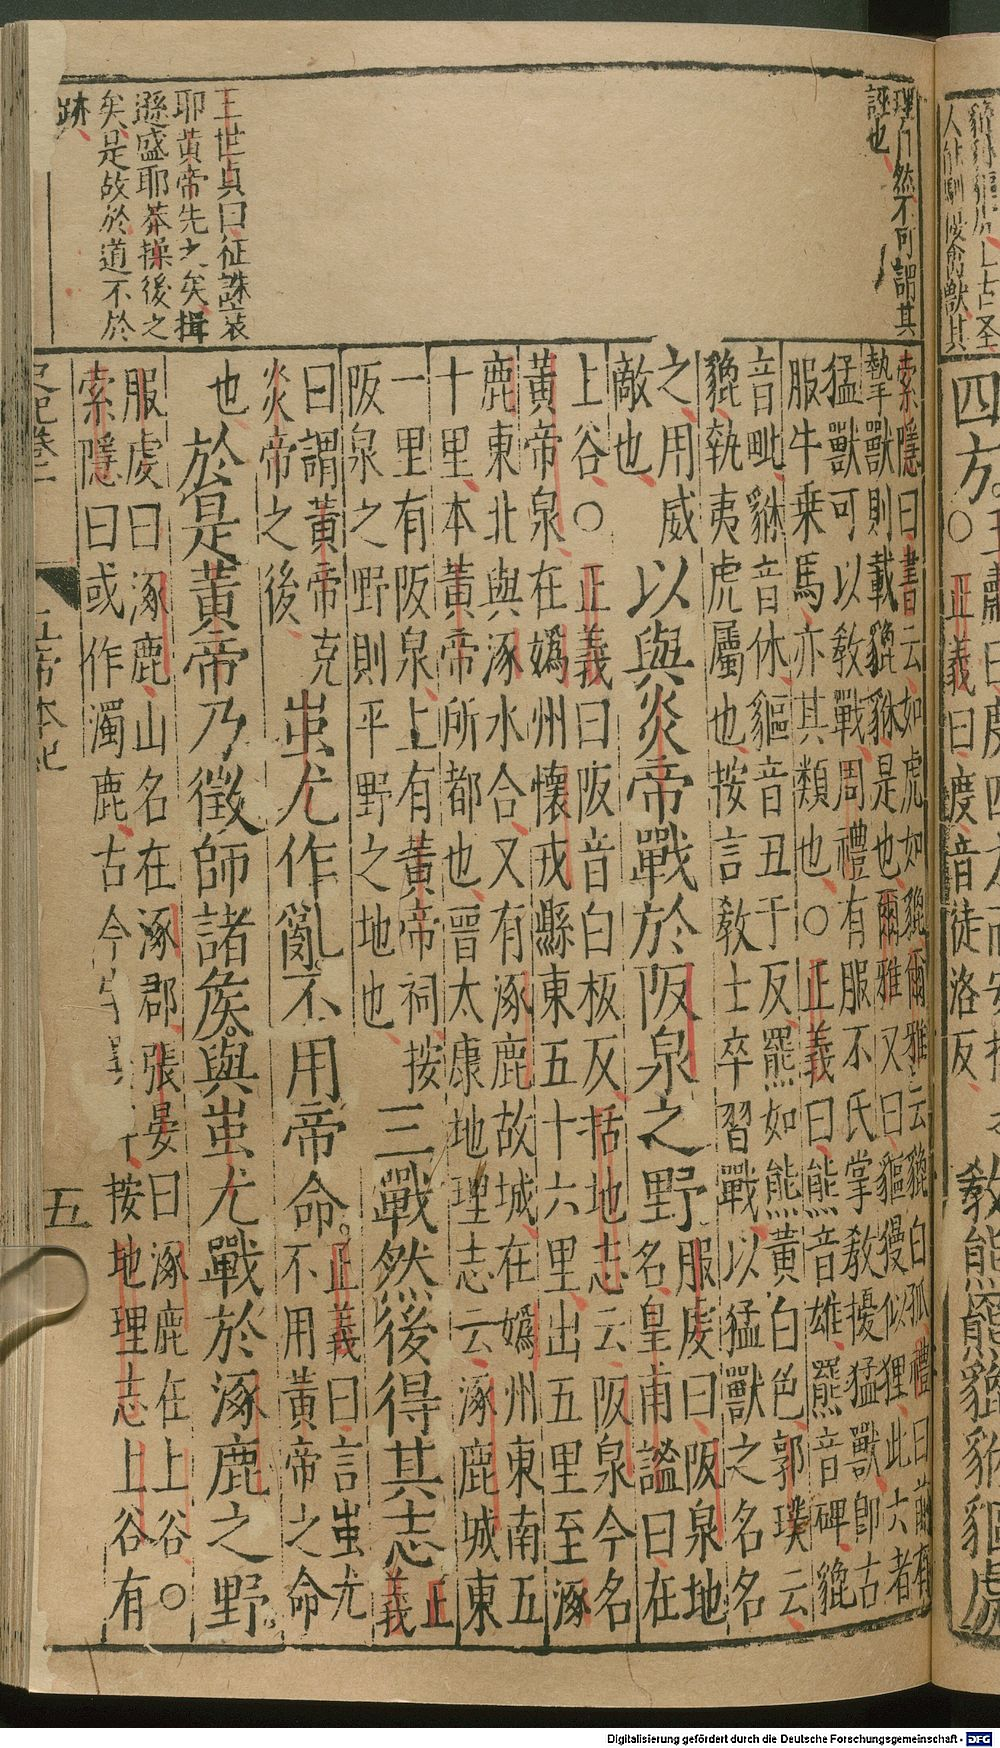 四方
○正義曰度音徒洛反
教熊羆貔貅貙虎
理自然不可謂其
誣也
王世貞曰征誅安
耶黃帝先之矣揖
遜盛耶莽操後之
矣是故於道不於
跡
索隱曰書云如虎如貔爾雅云貔白狐禮曰前有
摯獸則載貔貅是也爾雅又曰貙獌似狸此六者
猛獸可以敎戰周禮有服不氏掌敎擾猛獸卽古
服牛乗馬亦其類也○正義曰熊音雄羆音碑貔
音毗貅音休貙音丑于反羆如熊黃白色郭璞云
貔執夷虎屬也按言敎士卒習戰以猛獸之名名
之用威
敵也
以與炎帝戰於阪泉之野
服虔曰阪泉地
名皇甫謐曰在
上谷○正義曰阪音白板反括地志云阪泉今名
黃帝泉在嬀州懷戎縣東五十六里出五里至涿
鹿東北與涿水合又有涿鹿故城在嬀州東南五
十里本黃帝所都也晉太康地理志云涿鹿城東
一里有阪泉上有黃帝祠按
阪泉之野則平野之地也
三戰然後得其志
正
義
曰謂黃帝克
炎帝之後
蚩尤作亂不用帝命
正義曰言蚩尤
不用黃帝之命
也
於是黃帝乃徵師諸矦與蚩尤戰於涿鹿之野
服虔曰涿鹿山名在涿郡張晏曰涿鹿在上谷○
索隱曰或作濁鹿古今按地理志上谷有
史記卷一
五帝本紀
五
Digitalisierung gefördert durch die Deutsche Forschungsgemeinschaft - DFG